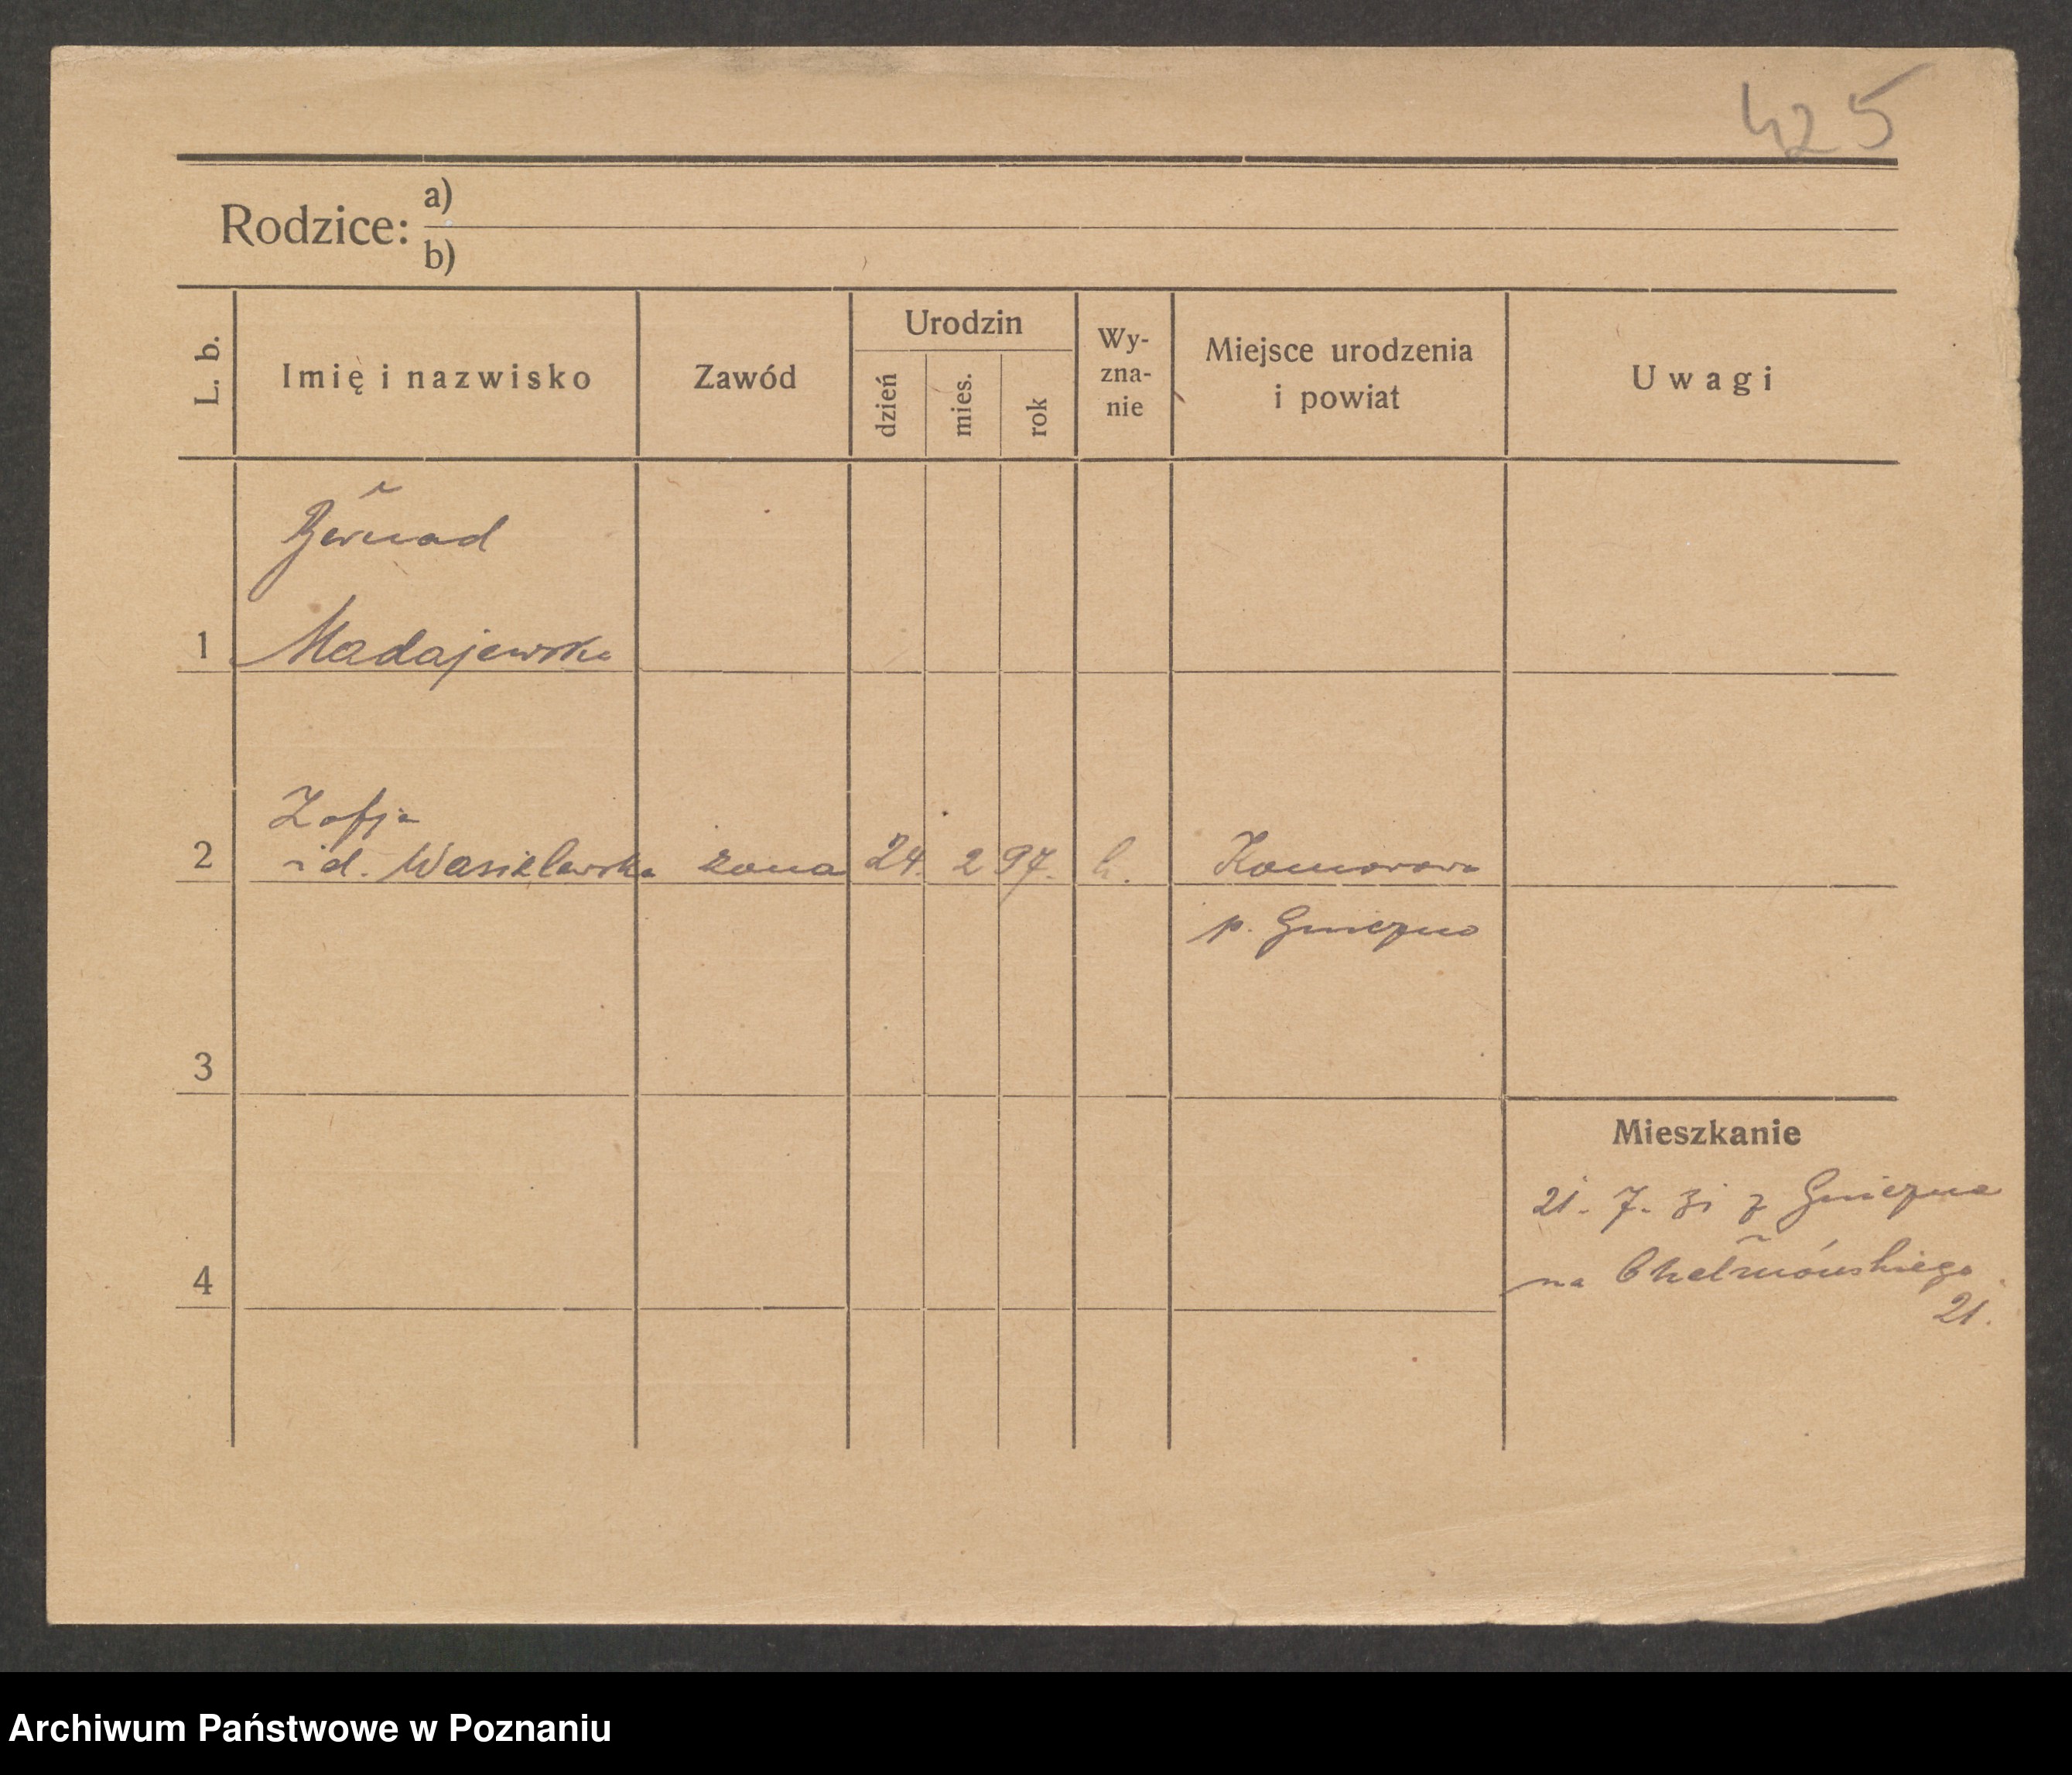 425
Rodzice: a)
b)
L. b. Imię i nazwisko Zawód Urodzin dzień mies. rok Wy-zna-nie Miejsce urodzenia i powiat Uwagi
Bernad
1 Madajewska
Zofja
2 id. Wasielewska żona 24. 2 97. k. Komorowo
p. Gniezno
3
Mieszkanie
21. 7. 31 z Gniezna
na Chełmońskiego
4
21.
Archiwum Państwowe w Poznaniu